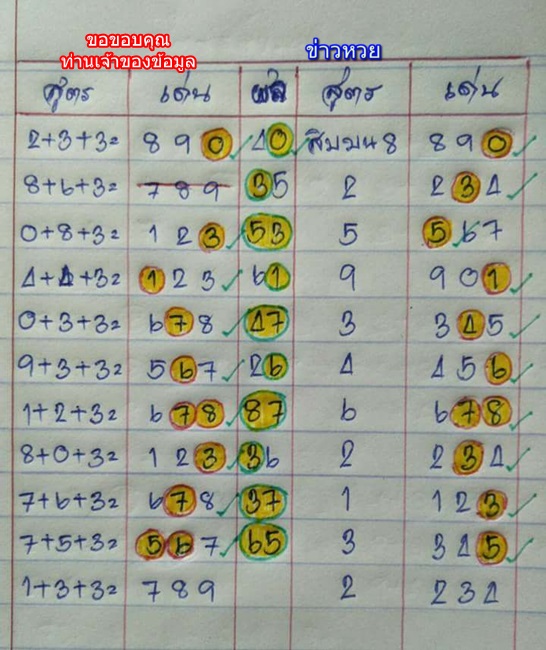 ขอขอบคุณ
ท่านเจ้าของข้อมูล
ข่าวหวย
สูตร เด่น ผล สูตร เด่น
2+3+3= 8 9 0 40 สิบบน 8 8 9 0
8+6+3= 7 8 9 35 2 2 3 4
0+8+3= 1 2 3 53 5 5 6 7
4+4+3= 1 2 3 61 9 9 0 1
0+3+3= 6 7 8 47 3 3 4 5
9+3+3= 5 6 7 26 4 4 5 6
1+2+3= 6 7 8 87 6 6 7 8
8+0+3= 1 2 3 36 2 2 3 4
7+6+3= 6 7 8 37 1 1 2 3
7+5+3= 5 6 7 65 3 3 4 5
1+3+3= 7 8 9 2 2 3 4